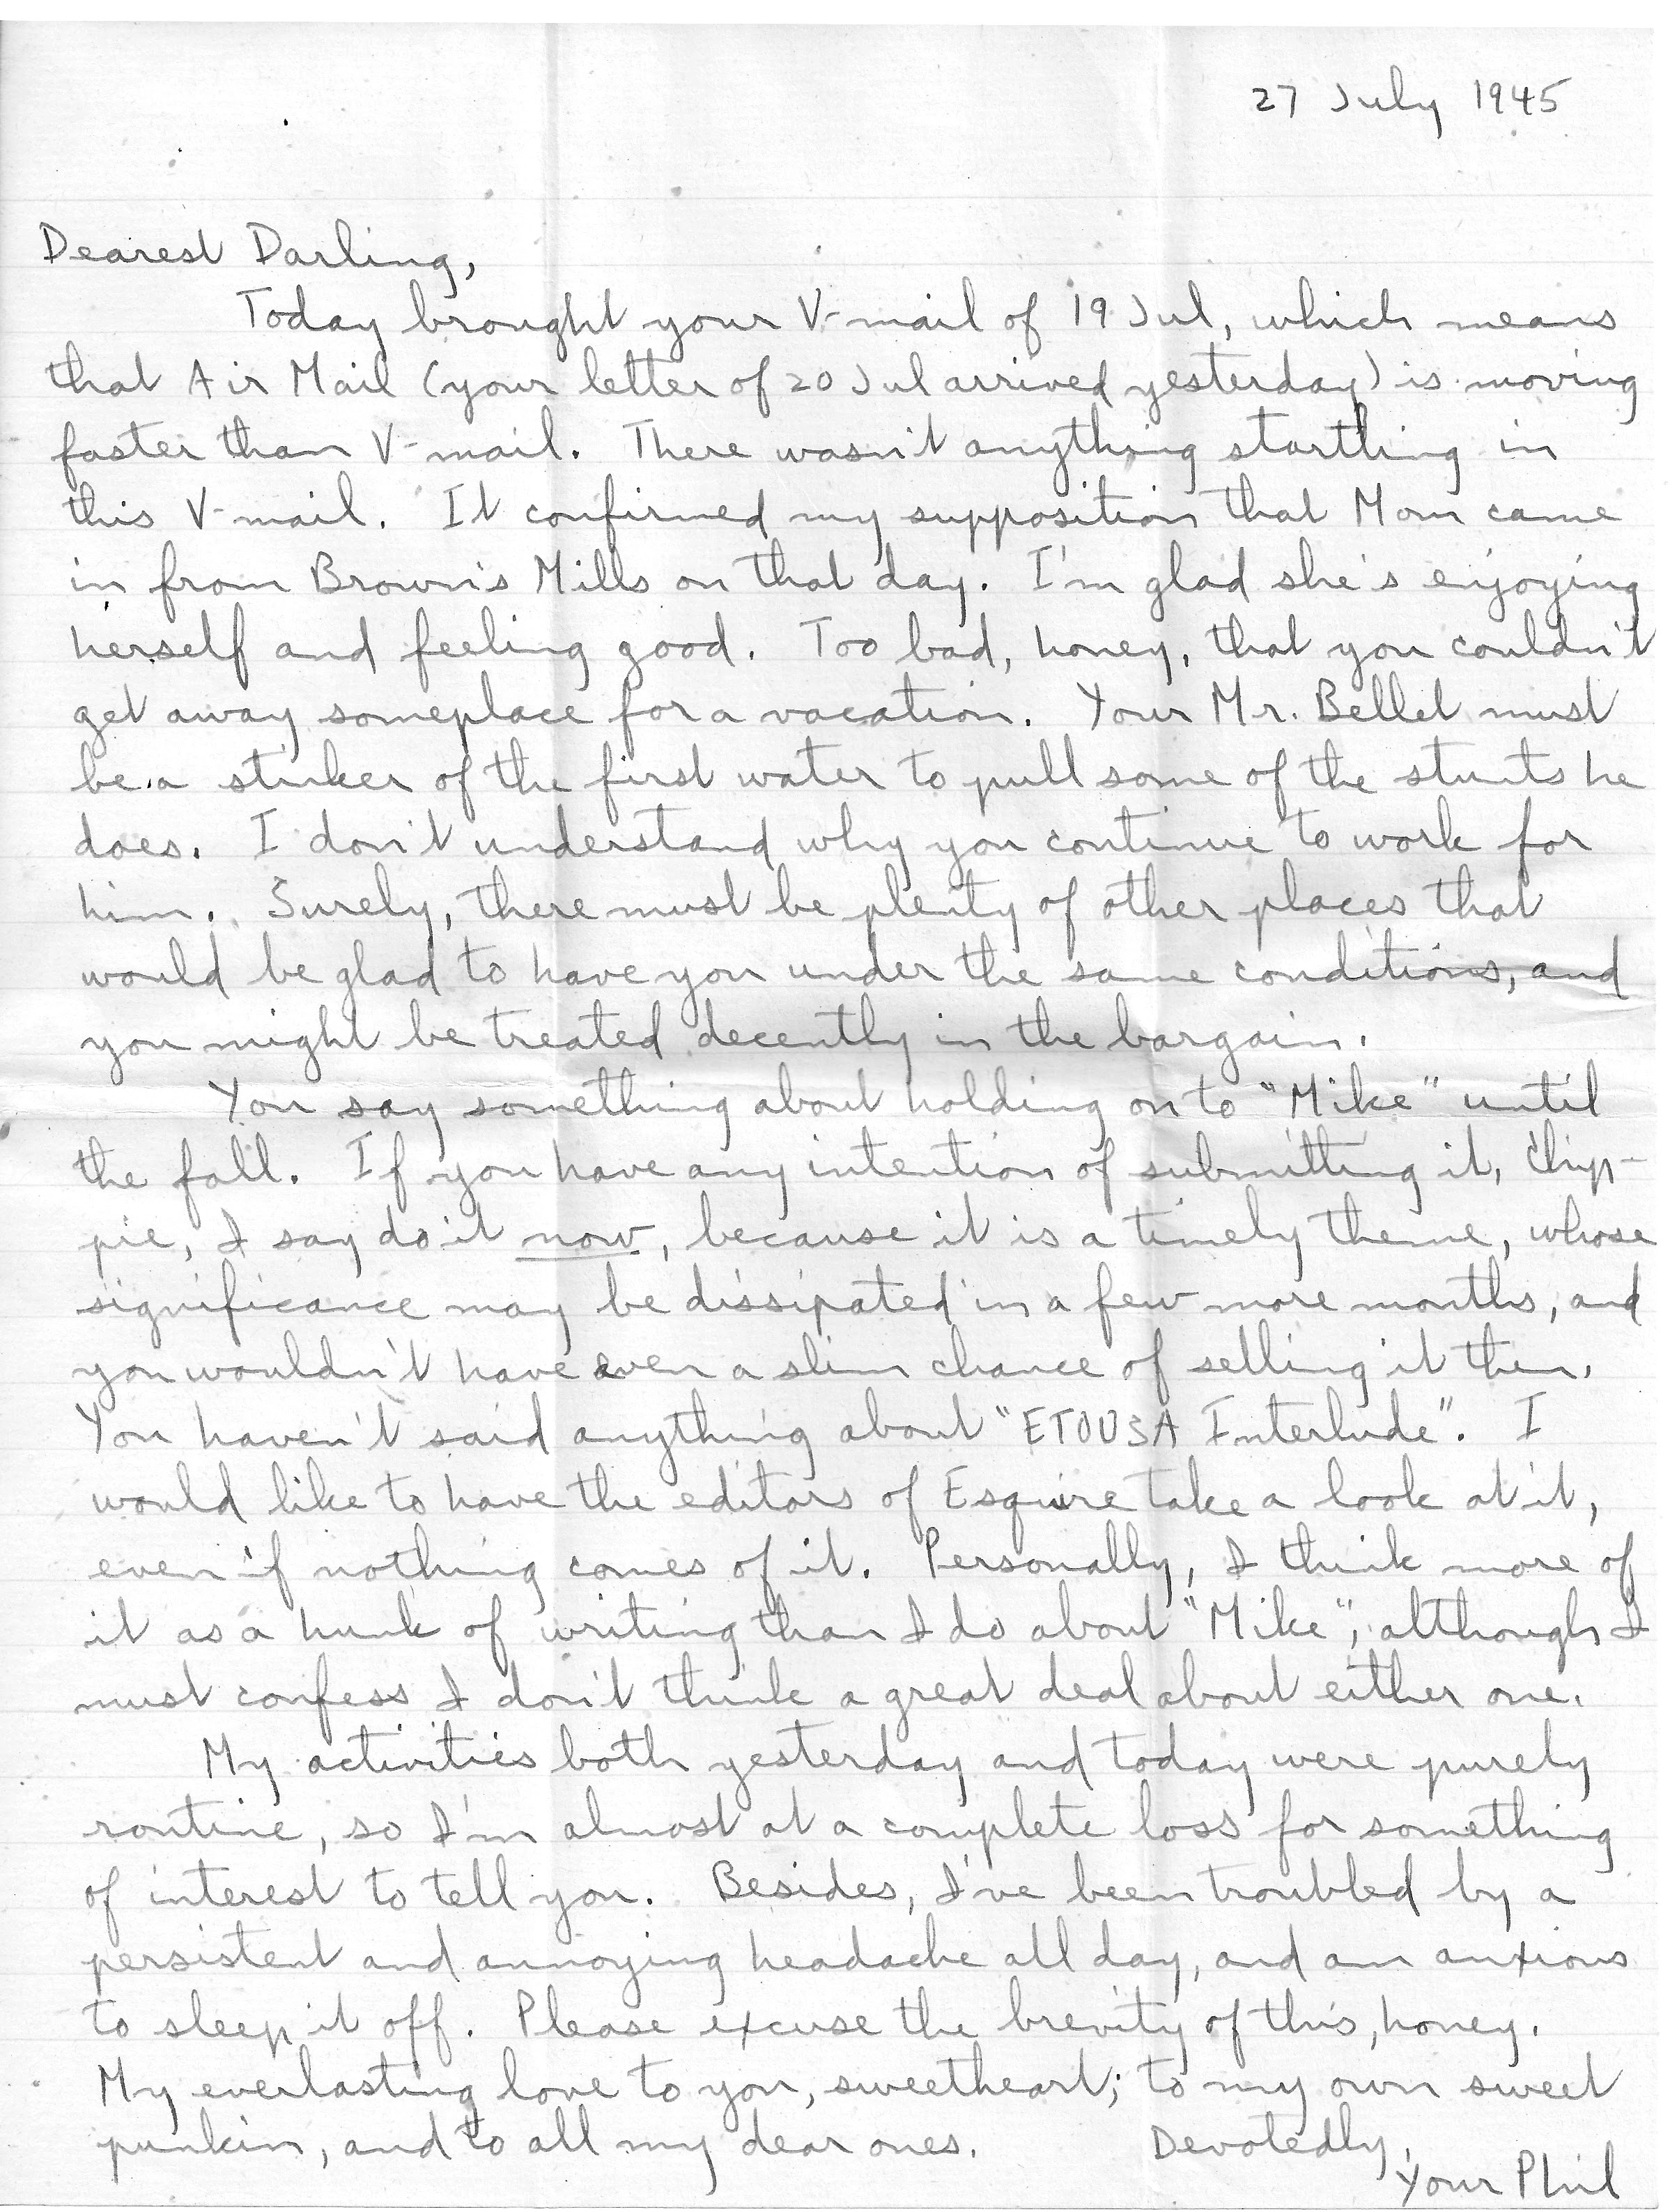 27 July 1945
Dearest Darling,
Today brought your V-mail of 19 Jul, which means
that Air Mail (your letter of 20 Jul arrived yesterday) is moving
faster than V-mail. There wasn't anything startling in
this V-mail. It confirmed my supposition that Mom came
in from Brown's Mills on that day. I'm glad she's enjoying
herself and feeling good. Too bad, honey, that you couldn't
get away someplace for a vacation. Your Mr. Bellet must
be a stinker of the first water to pull some of the stunts he
does. I don't understand why you continue to work for
him. Surely, there must be plenty of other places that
would be glad to have you under the same conditions, and
you might be treated decently in the bargain.
You say something about holding on to "Mike" until
the fall. If you have any intention of submitting it, Chip-
pie, I say do it now, because it is a timely theme, whose
significance may be dissipated in a few more months, and
you wouldn't have even a slim chance of selling it then.
You haven't said anything about "ETOUSA Interlude". I
would like to have the editors of Esquire take a look at it,
even if nothing comes of it. Personally, I think more of
it as a hunk of writing than I do about "Mike", although I
must confess I don't think a great deal about either one.
My activities both yesterday and today were purely
routine, so I'm almost at a complete loss for something
of interest to tell you. Besides, I've been troubled by a
persistent and annoying headache all day, and am anxious
to sleep it off. Please excuse the brevity of this, honey.
My everlasting love to you, sweetheart; to my own sweet
punkin, and to all my dear ones. Devotedly,
Your Phil